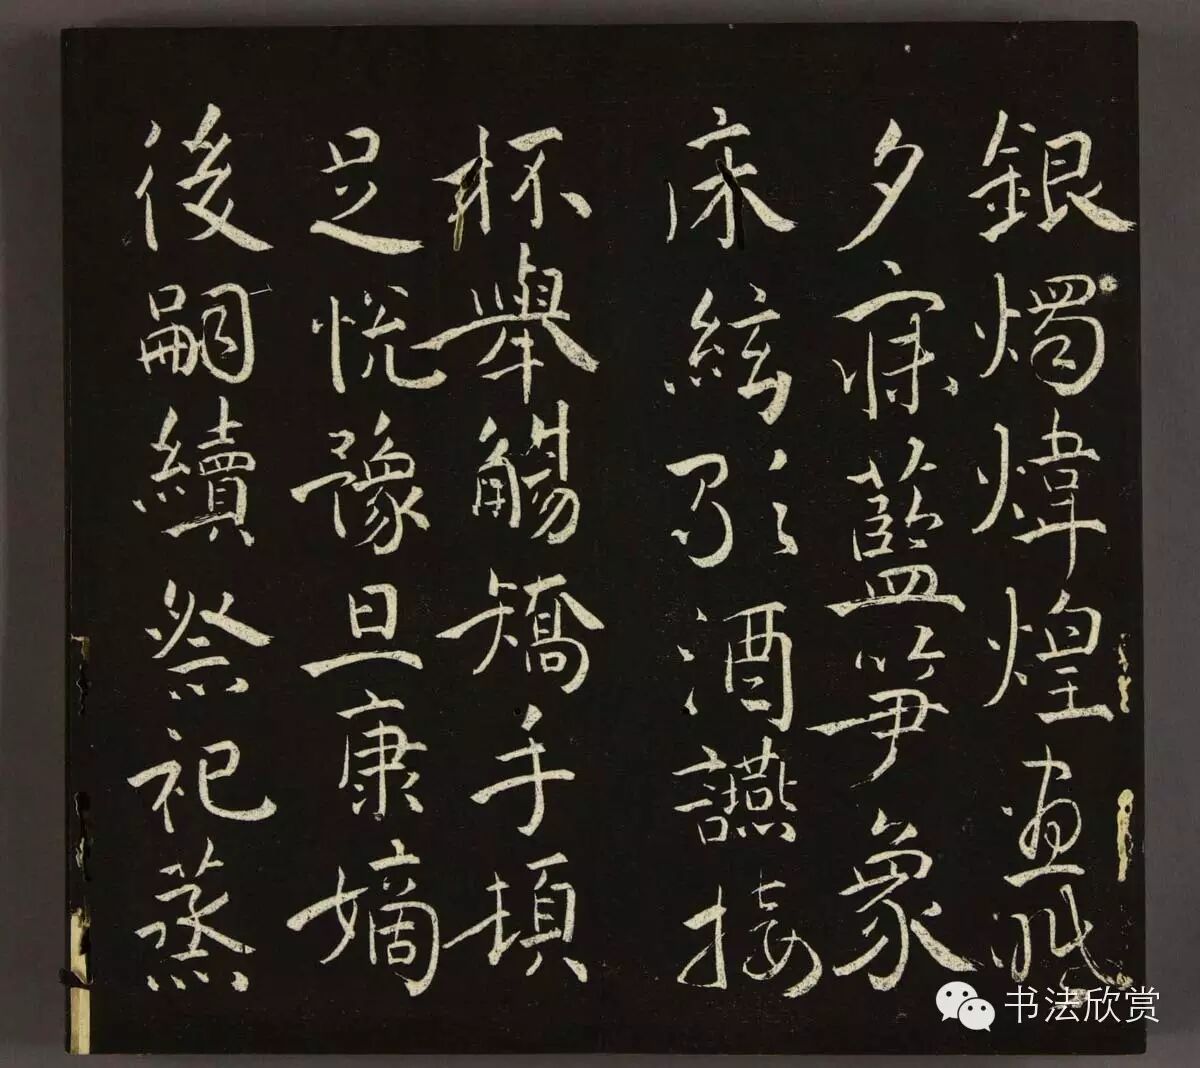 銀燭煒煌晝眠
夕寐藍笋象
床絃歌酒讌接
杯舉觴矯手頓
足悅豫且康嫡
後嗣續祭祀蒸
书法欣赏